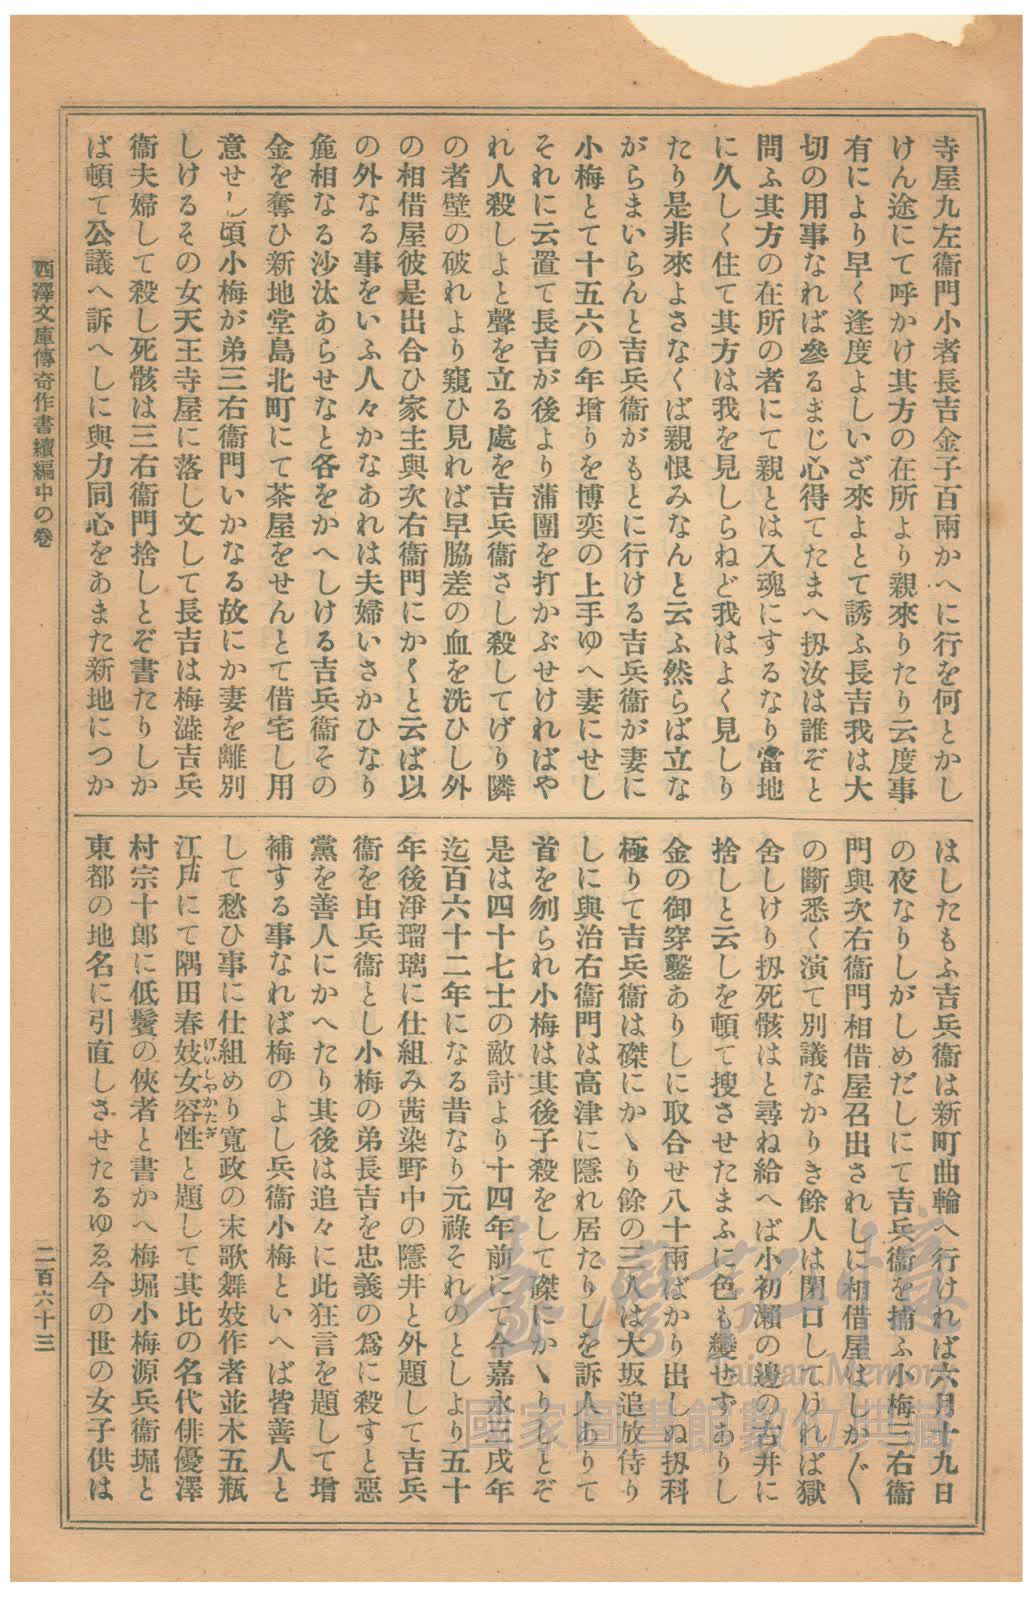 寺屋九左衞門小者長吉金子百兩かへに行を何とかし
けん途にて呼かけ其方の在所より親來りたり云度事
有により早く逢度よしいざ來よとて誘ふ長吉我は大
切の用事なれば參るまじ心得てたまへ扨汝は誰ぞと
問ふ其方の在所の者にて親とは入魂にするなり當地
に久しく住て其方は我を見しらねど我はよく見しり
たり是非來よさなくば親恨みなんと云ふ然らば立な
がらまいらんと吉兵衞がもとに行ける吉兵衞が妻に
小梅とて十五六の年增りを博奕の上手ゆへ妻にせし
それに云置て長吉が後より蒲團を打かぶせければや
れ人殺しよと聲を立る處を吉兵衞さし殺してげり隣
の者壁の破れより窺ひ見れば早脇差の血を洗ひし外
の相借屋彼是出合ひ家主與次右衞門にかくと云ば以
の外なる事をいふ人々かなあれは夫婦いさかひなり
麁相なる沙汰あらせなと各をかへしける吉兵衞その
金を奪ひ新地堂島北町にて茶屋をせんとて借宅し用
意せし頃小梅が弟三右衞門いかなる故にか妻を離別
しけるその女天王寺屋に落し文して長吉は梅澁吉兵
衞夫婦して殺し死骸は三右衞門捨しとぞ書たりしか
ば頓て公議へ訴へしに與力同心をあまた新地につか
はしたもふ吉兵衞は新町曲輪へ行ければ六月十九日
の夜なりしがしめだしにて吉兵衞を捕ふ小梅三右衞
門與次右衞門相借屋召出されしに相借屋はしか〴〵
の斷悉く演て別議なかりき餘人は閉口してければ獄
舍しけり扨死骸はと尋ね給へば小初瀨の邊の古井に
捨しと云しを頓て搜させたまふに色も變せずありし
金の御穿鑿ありしに取合せ八十兩ばかり出しぬ扨科
極りて吉兵衞は磔にかゝり餘の三人は大坂追放待り
しに與治右衞門は高津に隱れ居たりしを訴人ありて
首を刎られ小梅は其後子殺をして磔にかゝりしとぞ
是は四十七士の敵討より十四年前にて今嘉永三戌年
迄百六十二年になる昔なり元祿それのとしより五十
年後淨瑠璃に仕組み茜染野中の隱井と外題して吉兵
衞を由兵衞とし小梅の弟長吉を忠義の爲に殺すと惡
黨を善人にかへたり其後は追々に此狂言を題して增
補する事なれば梅のよし兵衞小梅といへば皆善人と
して愁ひ事に仕組めり寬政の末歌舞妓作者並木五瓶
江戶にて隅田春妓女容性と題して其比の名代俳優澤
げいしやかたぎ
村宗十郎に低鬢の俠者と書かへ梅堀小梅源兵衞堀と
東都の地名に引直しさせたるゆゑ今の世の女子供は
西澤文庫傳奇作書續編中の卷
二百六十三
臺灣記憶
Taiwan Memory
國家圖書館數位典藏